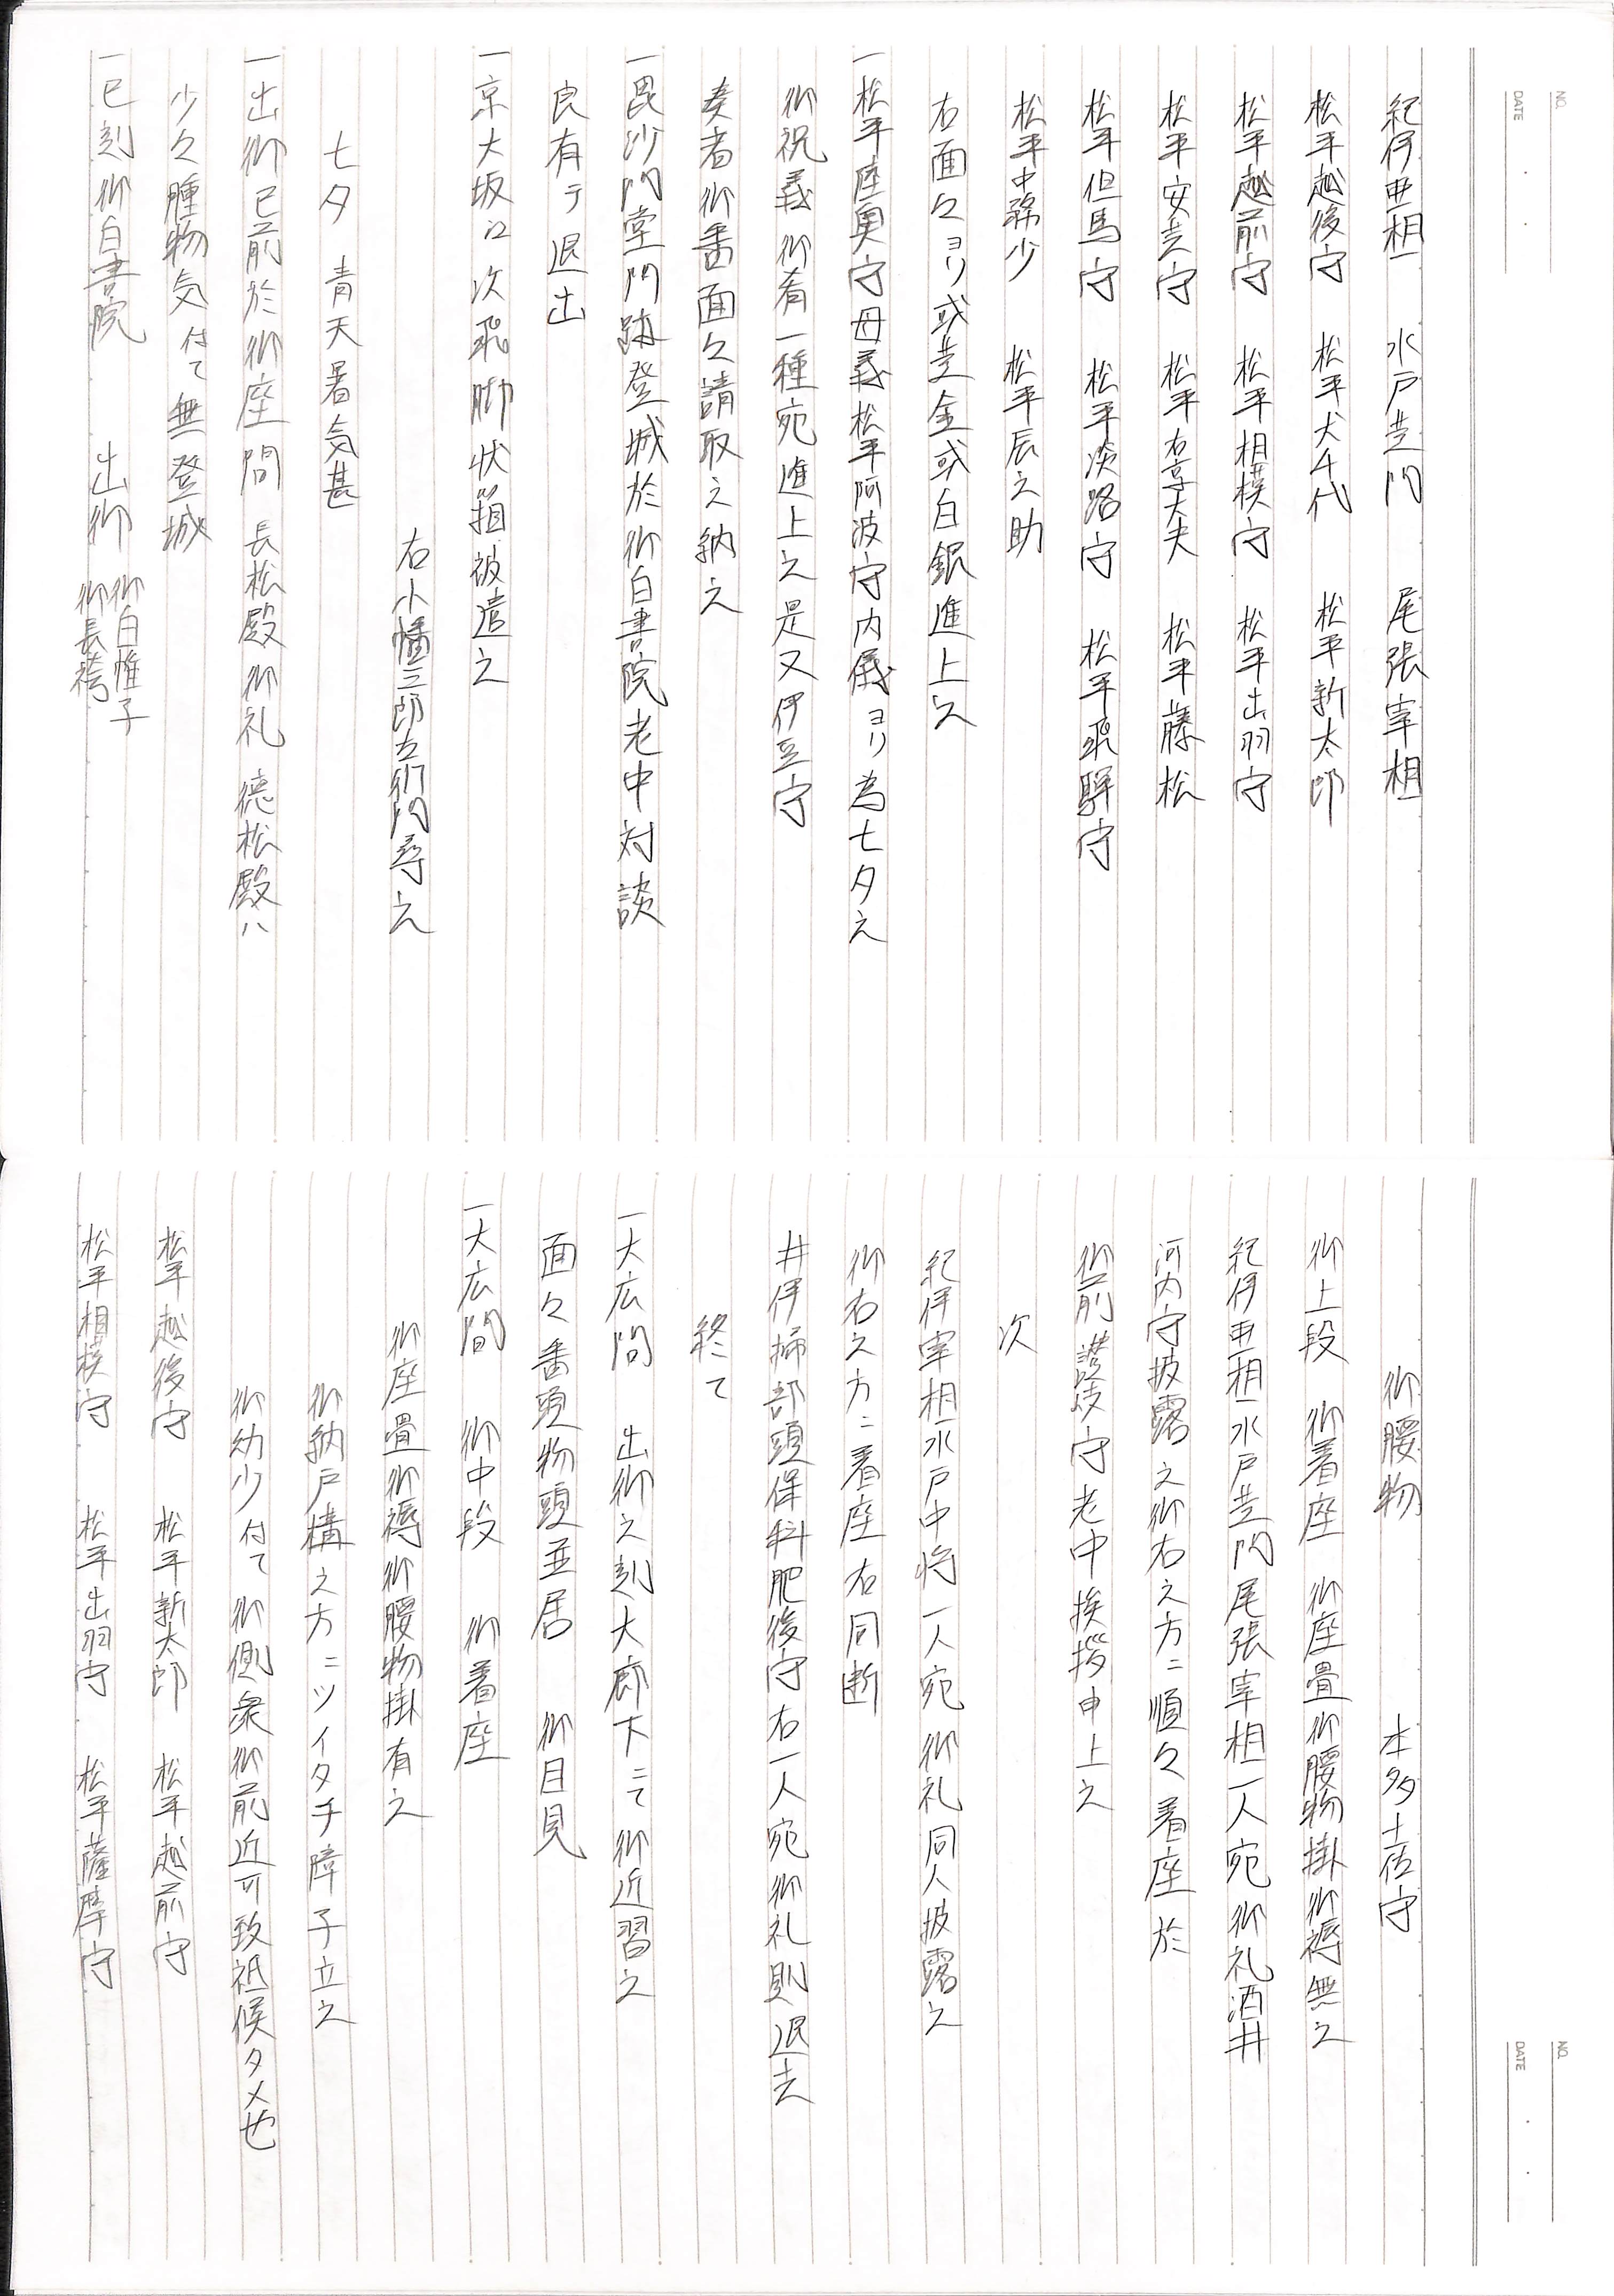 NO.
DATE
紀伊亜相 水戸黄門 尾張宰相
松平越後守 松平犬千代 松平新太郎
松平越前守 松平相模守 松平出羽守
松平安芸守 松平右京大夫 松平藤松
松平但馬守 松平淡路守 松平飛騨守
松平中務少 松平辰之助
右面々ヨリ或黄金或白銀進上之
一松平陸奥守母義松平阿波守内儀ヨリ為七夕之
御祝義御肴一種宛進上之是又伊豆守
奏者御番面々請取之納之
一毘沙門堂門跡登城於御白書院老中対談
良有テ退出
一京大坂江次飛脚状箱被遣之
右小幡三郎左衛門尋之
七夕 青天暑気甚
一出御已前於御座間長松殿御礼徳松殿ハ
少々腫物気付て無登城
一巳刻御白書院 出御 御白帷子
御長袴
NO.
DATE
御腰物 本多土佐守
御上段 御着座 御座畳御腰物掛御褥無之
紀伊亜相水戸黄門尾張宰相一人宛御礼酒井
河内守披露之御右之方ニ順々着座於
御前讃岐守老中挨拶申上之
次
紀伊宰相水戸中将一人宛御礼同人披露之
御右之方ニ着座右同断
井伊掃部頭保科肥後守右一人宛御礼則退去
終て
一大広間 出御之刻大廊下ニて御近習之
面々番頭物頭並居 御目見
一大広間 御中段 御着座
御座畳御褥御腰物掛有之
御納戸構之方ニツイタチ障子立之
御幼少付て御側衆御前近可致祗候タメ也
松平越後守 松平新太郎 松平越前守
松平相模守 松平出羽守 松平薩摩守